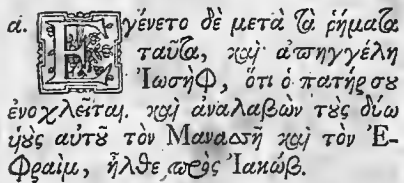 α. Εγένετο δὲ μετὰ τὰ ῥήματα
ταῦτα, καὶ ἀπηγγέλη
Ἰωσὴφ, ὅτι ὁ πατήρ σου
ἐνοχλεῖται. καὶ ἀναλαβὼν τοὺς δύω
υἱοὺς αὐτοῦ τὸν Μανασσῆ καὶ τὸν Ἐ-
φραὶμ, ἦλθε πρὸς Ἰακώβ.